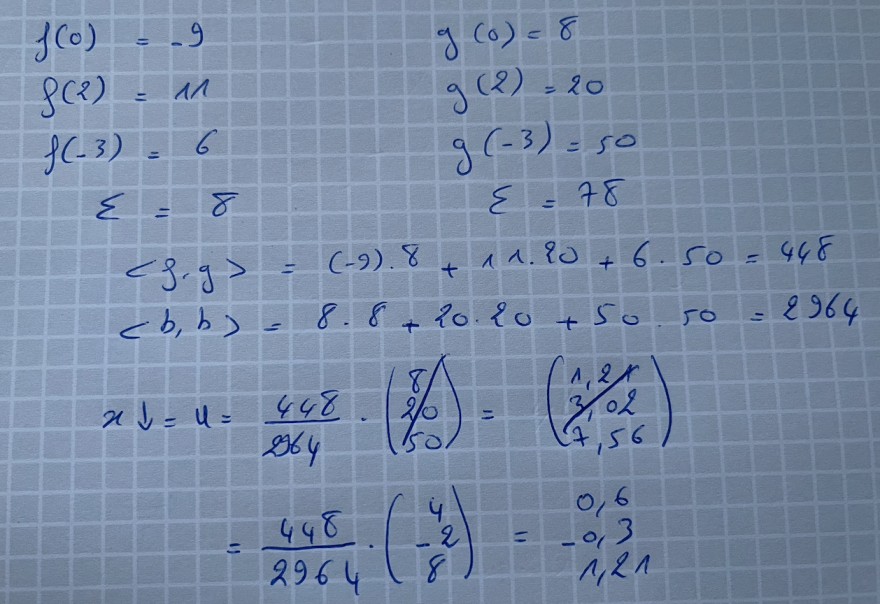 f(0) = -9 g(0) = 8
f(2) = 11 g(2) = 20
f(-3) = 6 g(-3) = 50
Σ = 8 Σ = 78
<f.g> = (-9).8 + 11.20 + 6.50 = 448
<b,b> = 8.8 + 20.20 + 50.50 = 2964
x↓ = u = 448/2964 . (8 20 50) = (1,21 3,02 7,56)
= 448/2964 . (4 -2 8) = 0,6 -0,3 1,21